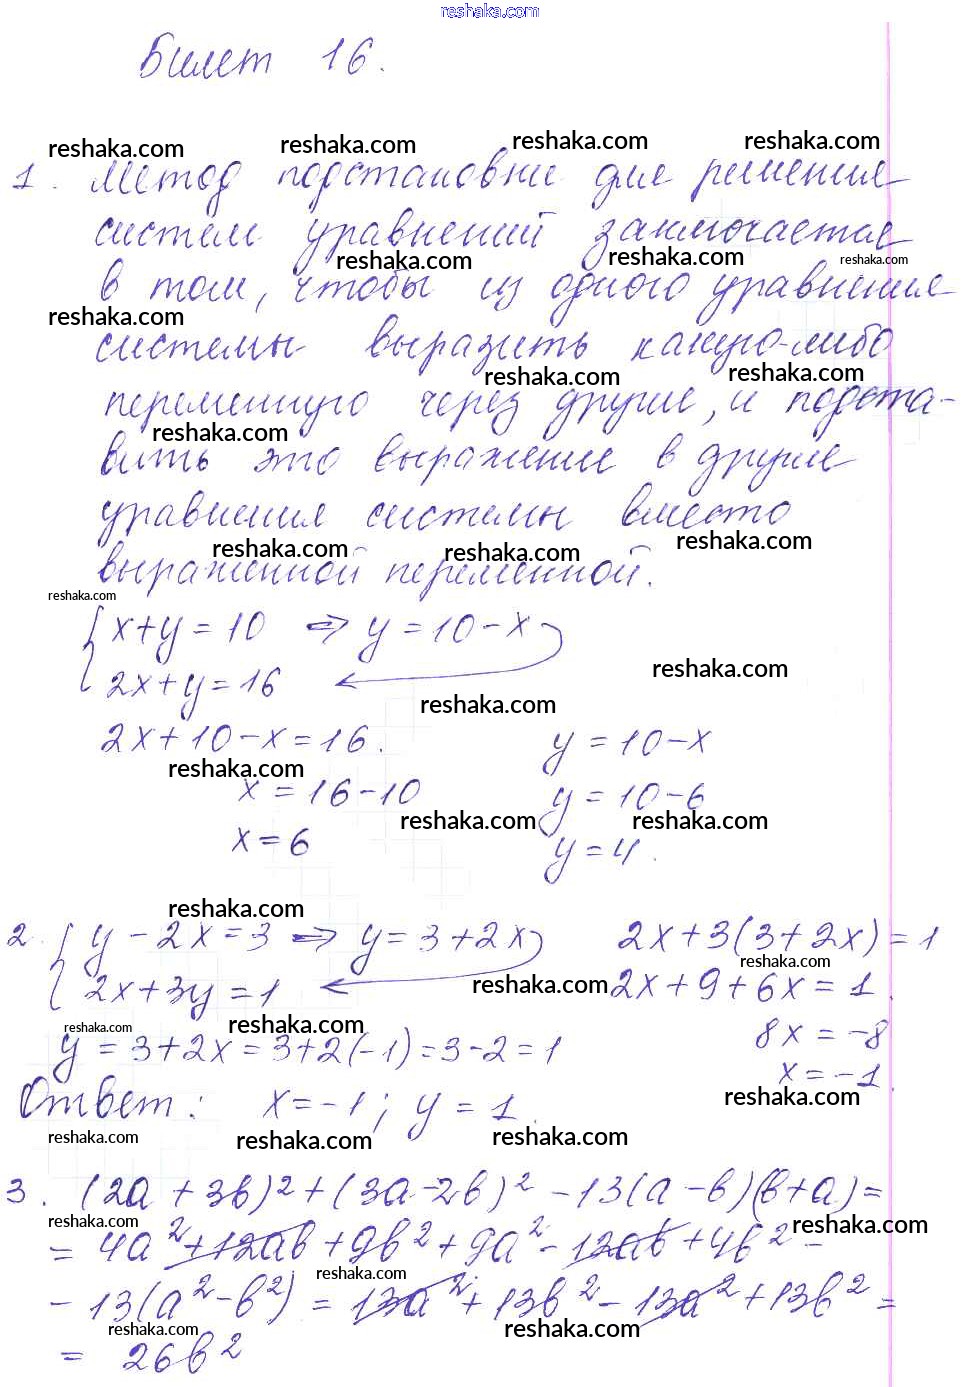 reshaka.com
Билет 16.
reshaka.com reshaka.com reshaka.com reshaka.com
1. Метод подстановки для решения
систем уравнений заключается
reshaka.com reshaka.com reshaka.com
в том, чтобы из одного уравнения
reshaka.com
системы выразить какую-либо
reshaka.com reshaka.com
переменную через другие, и подста-
reshaka.com
вить это выражение в другие
уравнения системы вместо
reshaka.com reshaka.com reshaka.com
выраженной переменной.
reshaka.com
{ x+y=10 ⇒ y=10-x
reshaka.com
2x+y=16
reshaka.com
2x+10-x=16. y=10-x
reshaka.com
x=16-10 y=10-6
reshaka.com reshaka.com
x=6 y=4.
reshaka.com
2. { y-2x=3 ⇒ y=3+2x 2x+3(3+2x)=1
reshaka.com
2x+3y=1 reshaka.com 2x+9+6x=1.
reshaka.com reshaka.com 8x=-8
y=3+2x=3+2(-1)=3-2=1
x=-1.
reshaka.com
Ответ: x=-1; y=1.
reshaka.com reshaka.com reshaka.com
3. (2a+3b)²+(3a-2b)²-13(a-b)(b+a)=
reshaka.com reshaka.com
=4a²+12ab+9b²+9a²-12ab+4b²-
reshaka.com
-13(a²-b²)=13a²+13b²-13a²+13b²=
reshaka.com reshaka.com
=26b²